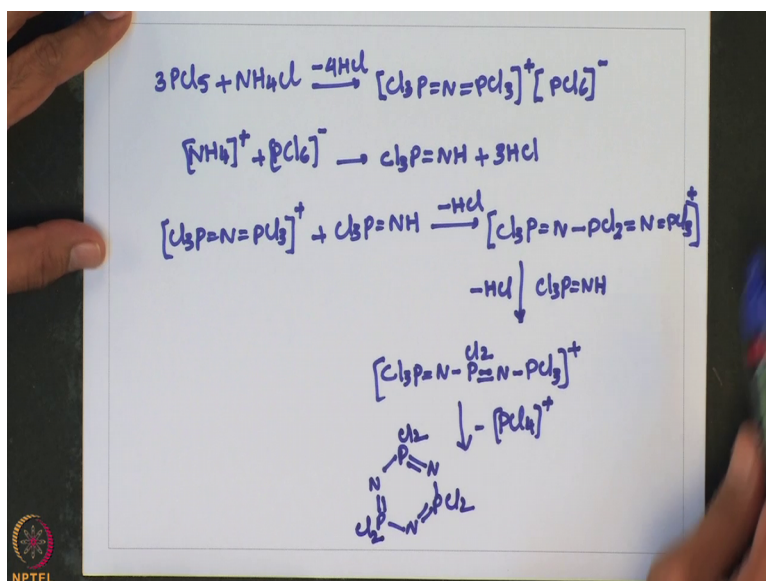 3PCl5 + NH4Cl —-4HCl→ [Cl3P=N=PCl3]+ [PCl6]-
[NH4]+ + [PCl6]- → Cl3P=NH + 3HCl
[Cl3P=N=PCl3]+ + Cl3P=NH —-HCl→ [Cl3P=N-PCl2=N=PCl3]+
-HCl ↓ Cl3P=NH
[Cl3P=N-PCl2=N-PCl3]+
↓ -[PCl4]+
Cl2
P
N N
P PCl2
Cl2 N
NPTEL